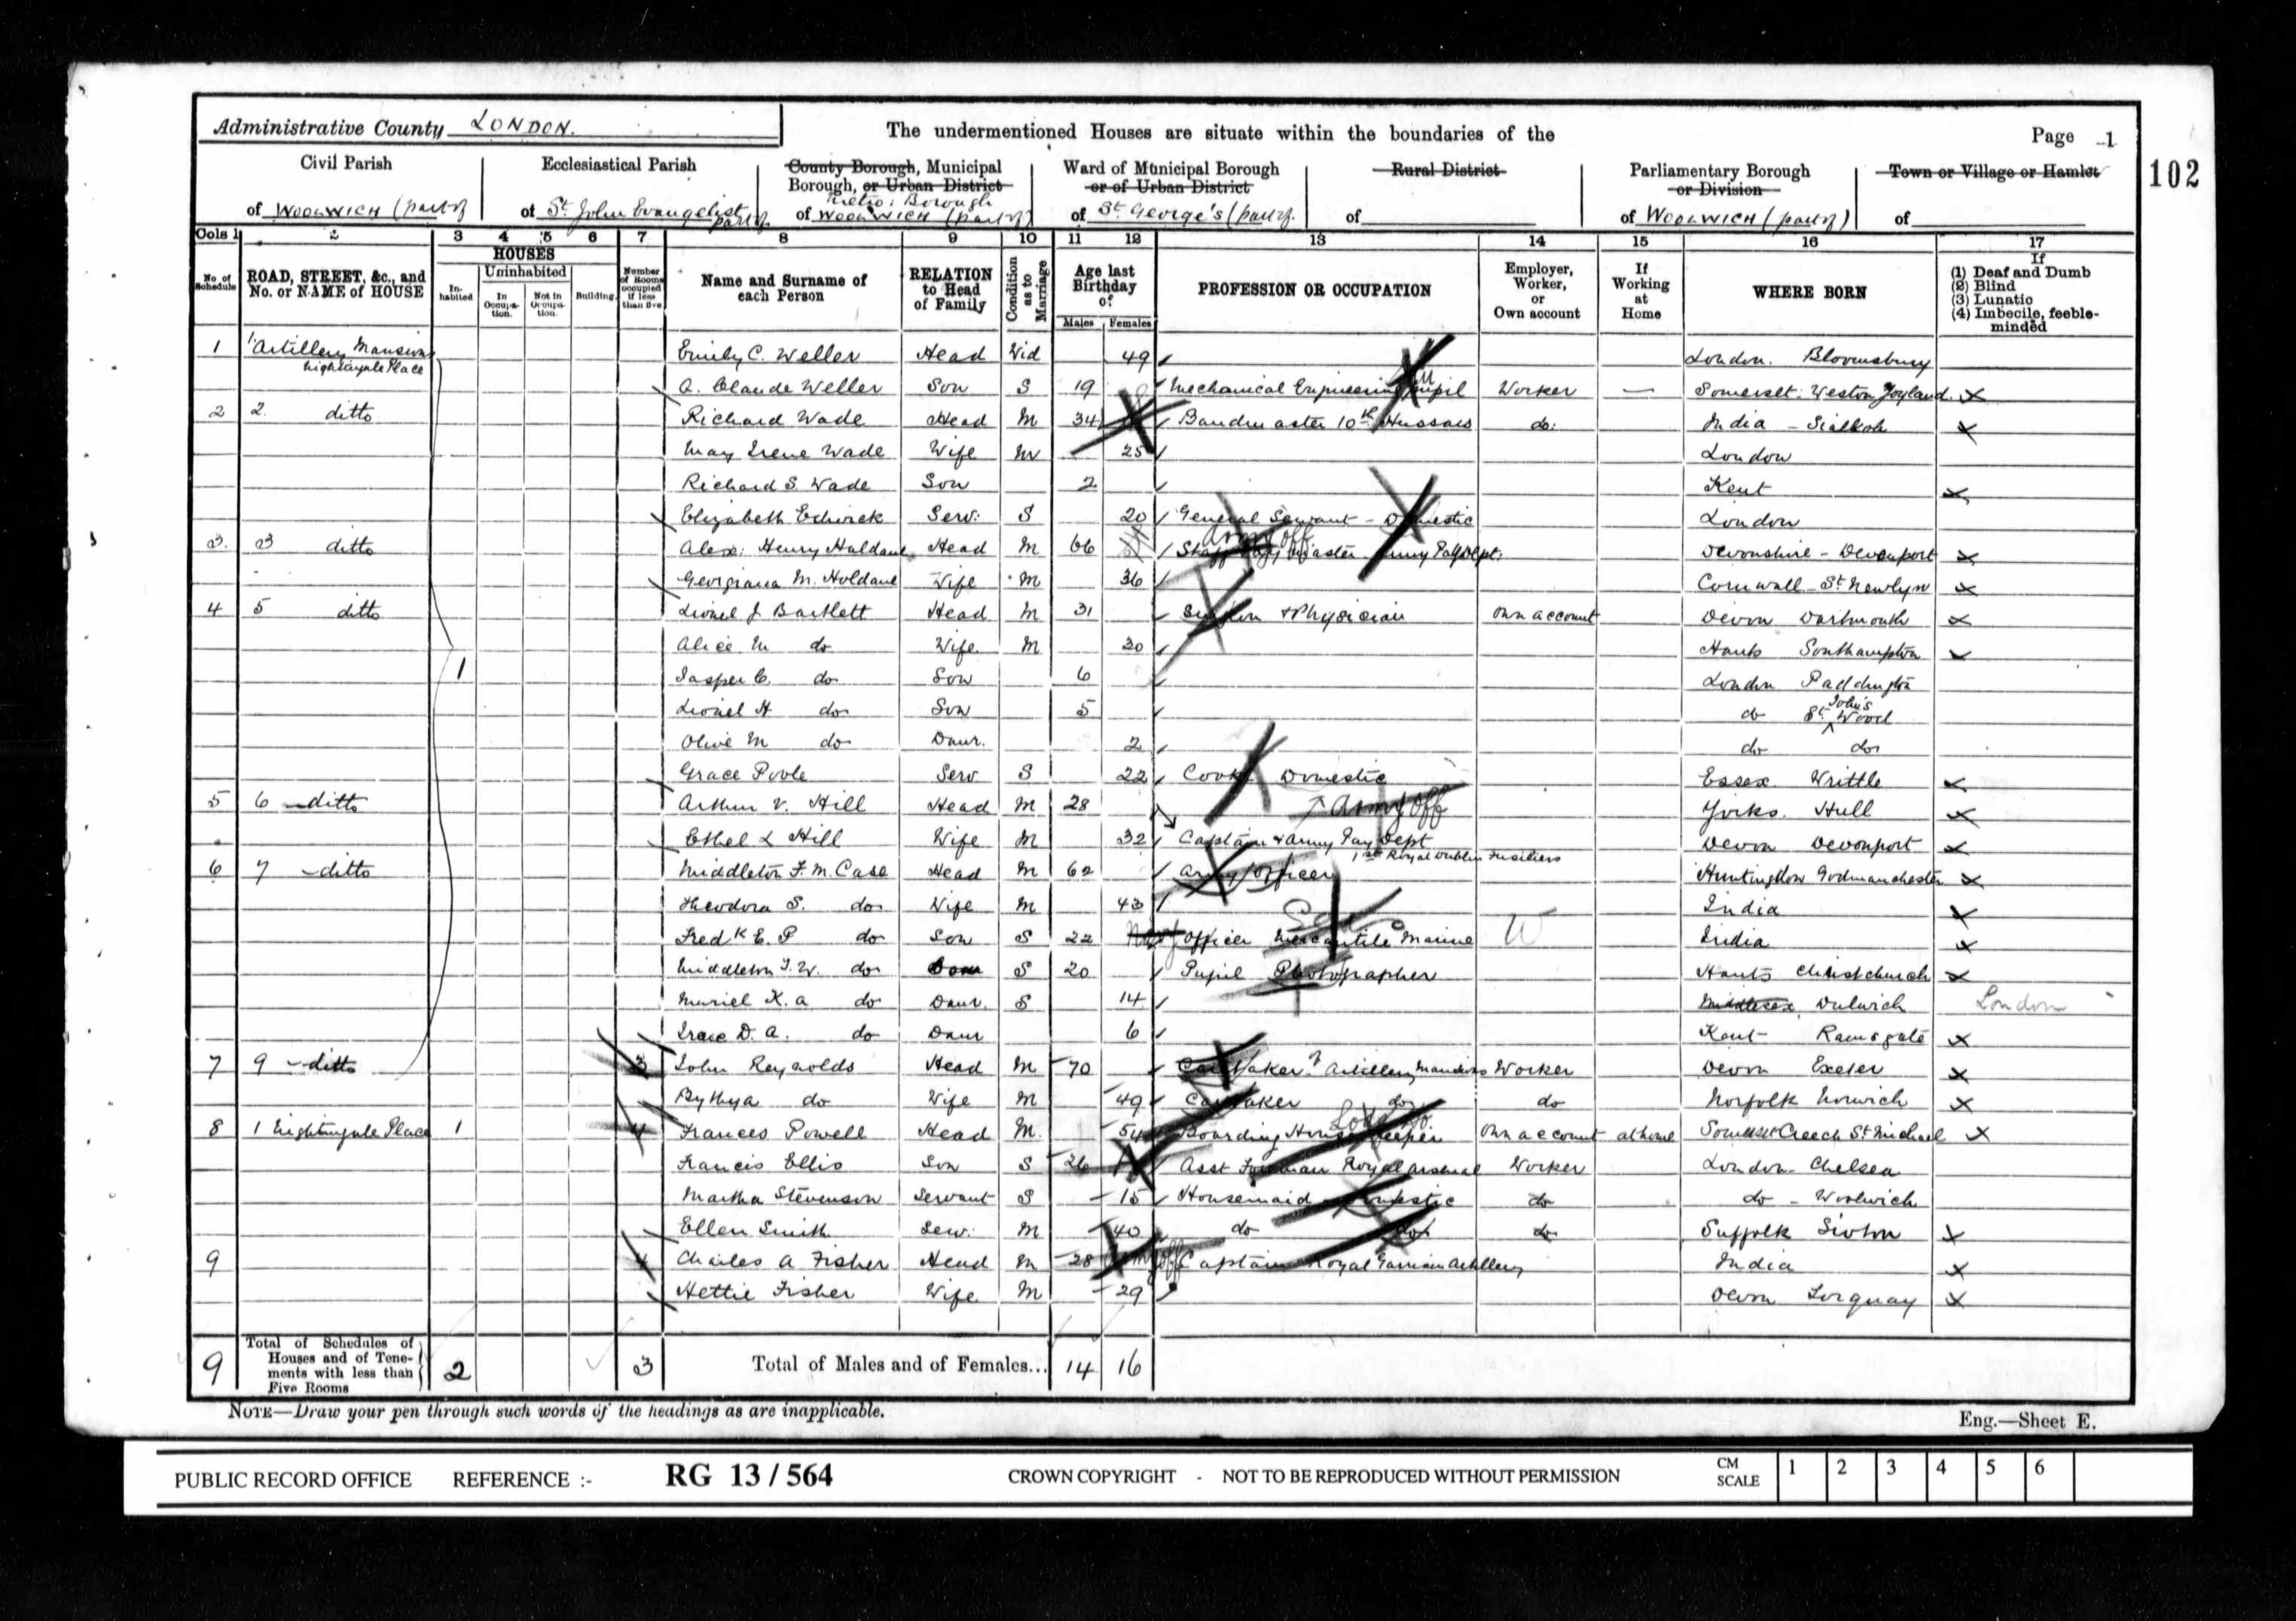 Administrative County LONDON.
The undermentioned Houses are situate within the boundaries of the
Page 1
102
Civil Parish
of WOOLWICH (part of
Ecclesiastical Parish
of St. John Evangelist part of
County Borough, Municipal Borough, or Urban District
Metro: Borough
of WOOLWICH (part of)
Ward of Municipal Borough or of Urban District
of St. George's (part of.
Rural District
of
Parliamentary Borough or Division
of WOOLWICH (part of)
Town or Village or Hamlet
of
Cols 1 2 3 4 5 6 7 8 9 10 11 12 13 14 15 16 17
No. of Schedule
ROAD, STREET, &c., and No. or NAME of HOUSE
HOUSES
Inhabited
Uninhabited
In Occupation.
Not in Occupation.
Building.
Number of Rooms occupied if less than five
Name and Surname of each Person
RELATION to Head of Family
Condition as to Marriage
Age last Birthday of
Males Females
PROFESSION OR OCCUPATION
Employer, Worker, or Own account
If Working at Home
WHERE BORN
If
(1) Deaf and Dumb
(2) Blind
(3) Lunatic
(4) Imbecile, feeble-minded
1 1 Artillery Mansions Nightingale Place Emily C. Weller Head Wid 49 London. Bloomsbury
A. Claude Weller Son S 19 Mechanical Engineering Pupil Worker — Somerset: Weston Zoyland
2 2 ditto Richard Wade Head M 34 Bandmaster 10th Hussars do: India - Sialkoh
May Irene Wade Wife M 25 London
Richard S. Wade Son 2 Kent
Elizabeth Serv: S 20 General Servant - Domestic London
3. 3 ditto Alex: Henry Haldane Head M 66 Army off Staff Paymaster Army Pay Dept: Devonshire - Devonport
Georgiana M. Haldane Wife M 36 Cornwall - St. Newlyn
4 5 ditto Lionel J Bartlett Head M 31 Surgeon & Physician Own account Devon Dartmouth
Alice M do Wife M 30 Hants Southampton
1 Jasper C. do Son 6 London Paddington
Lionel H do Son 5 do St. John's Wood
Olive M do Daur. 2 do do
Grace Poole Serv S 22 Cook Domestic Essex Writtle
5 6 ditto Arthur V. Hill Head M 28 Army Off Yorks. Hull
Ethel L Hill Wife M 32 Captain & Army Pay Dept Devon Devonport
1st Royal Dublin Fusiliers
6 7 ditto Middleton F. M. Case Head M 62 Army Officer Huntingdon Godmanchester
Theodora S. do Wife M 43 India
Fredk E. P do Son S 22 Officer Mercantile Marine W India
Middleton T. W. do Son S 20 Pupil Photographer Hants Christchurch
Muriel K. A do Daur. S 14 Middlesex Dulwich London
Irene D. A. do Daur 6 Kent Ramsgate
7 9 ditto 3 John Reynolds Head M 70 Caretaker Artillery Mansions Worker Devon Exeter
Bythya do Wife M 49 Caretaker do do Norfolk Norwich
8 1 Nightingale Place 1 4 Frances Powell Head M. 54 Boarding House Keeper Own account at home Somerset Creech St. Michael
Francis Ellis Son S 26 Asst Foreman Royal Arsenal Worker London - Chelsea
Martha Stevenson Servant S 15 Housemaid Domestic do do - Woolwich
Ellen Smith Serv: M 40 do do do Suffolk
9 4 Charles A Fisher Head M 28 Captain Royal Garrison Artillery India
Hettie Fisher Wife M 29 Devon Torquay
9 Total of Schedules of Houses and of Tenements with less than Five Rooms 2 3 Total of Males and of Females... 14 16
NOTE—Draw your pen through such words of the headings as are inapplicable.
Eng.—Sheet E.
PUBLIC RECORD OFFICE REFERENCE :- RG 13 / 564 CROWN COPYRIGHT - NOT TO BE REPRODUCED WITHOUT PERMISSION CM SCALE 1 2 3 4 5 6